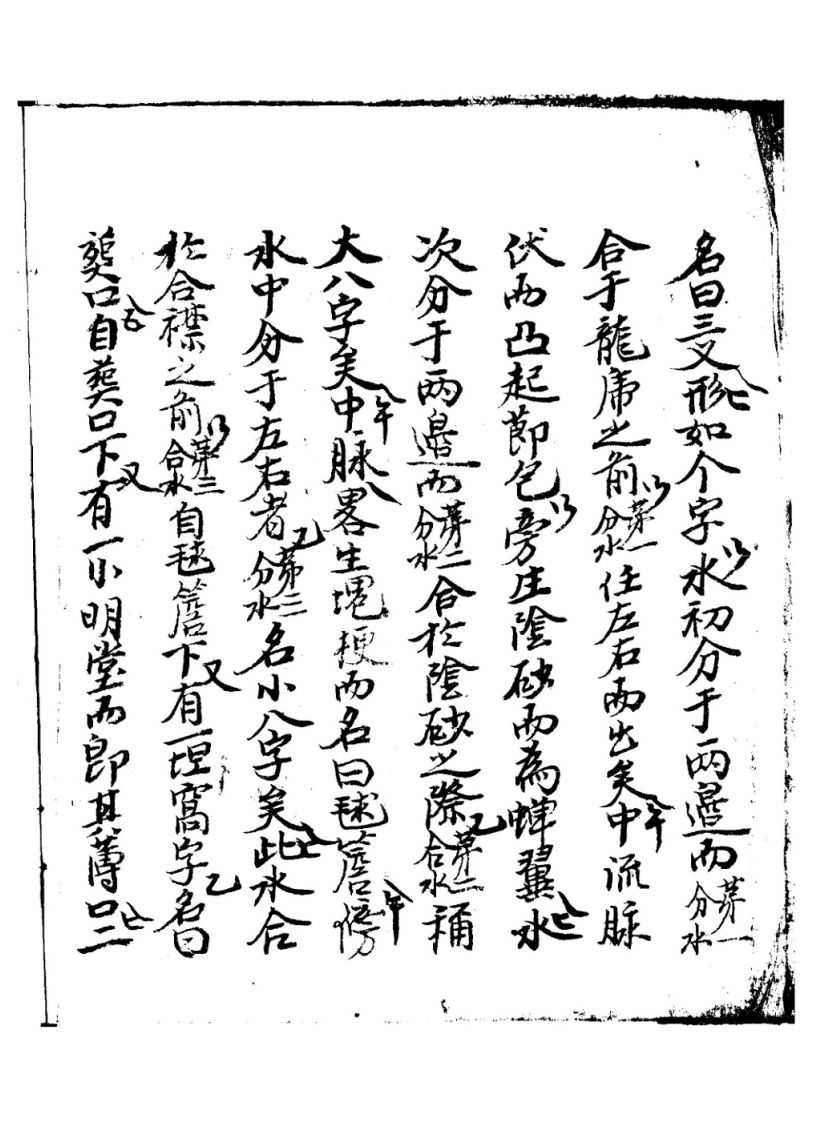 名曰三叉形如个字水初分于两邉而苐一分水
合于龍虎之前苐一分水任左右而出矣中流脉
伏而凸起節包旁生陰砂而為蟬翼水
次分于两邉而苐二分水合於陰砂之際苐二合水稱
大八字矣中脉畧生堭梗而名曰毬簷傍
水中分于左右者苐三分水名小八字矣此水合
於合襟之前苐三合水自毬簷下有一坦窩字名曰
葬口自葬口下有一小明堂而即其薄口二